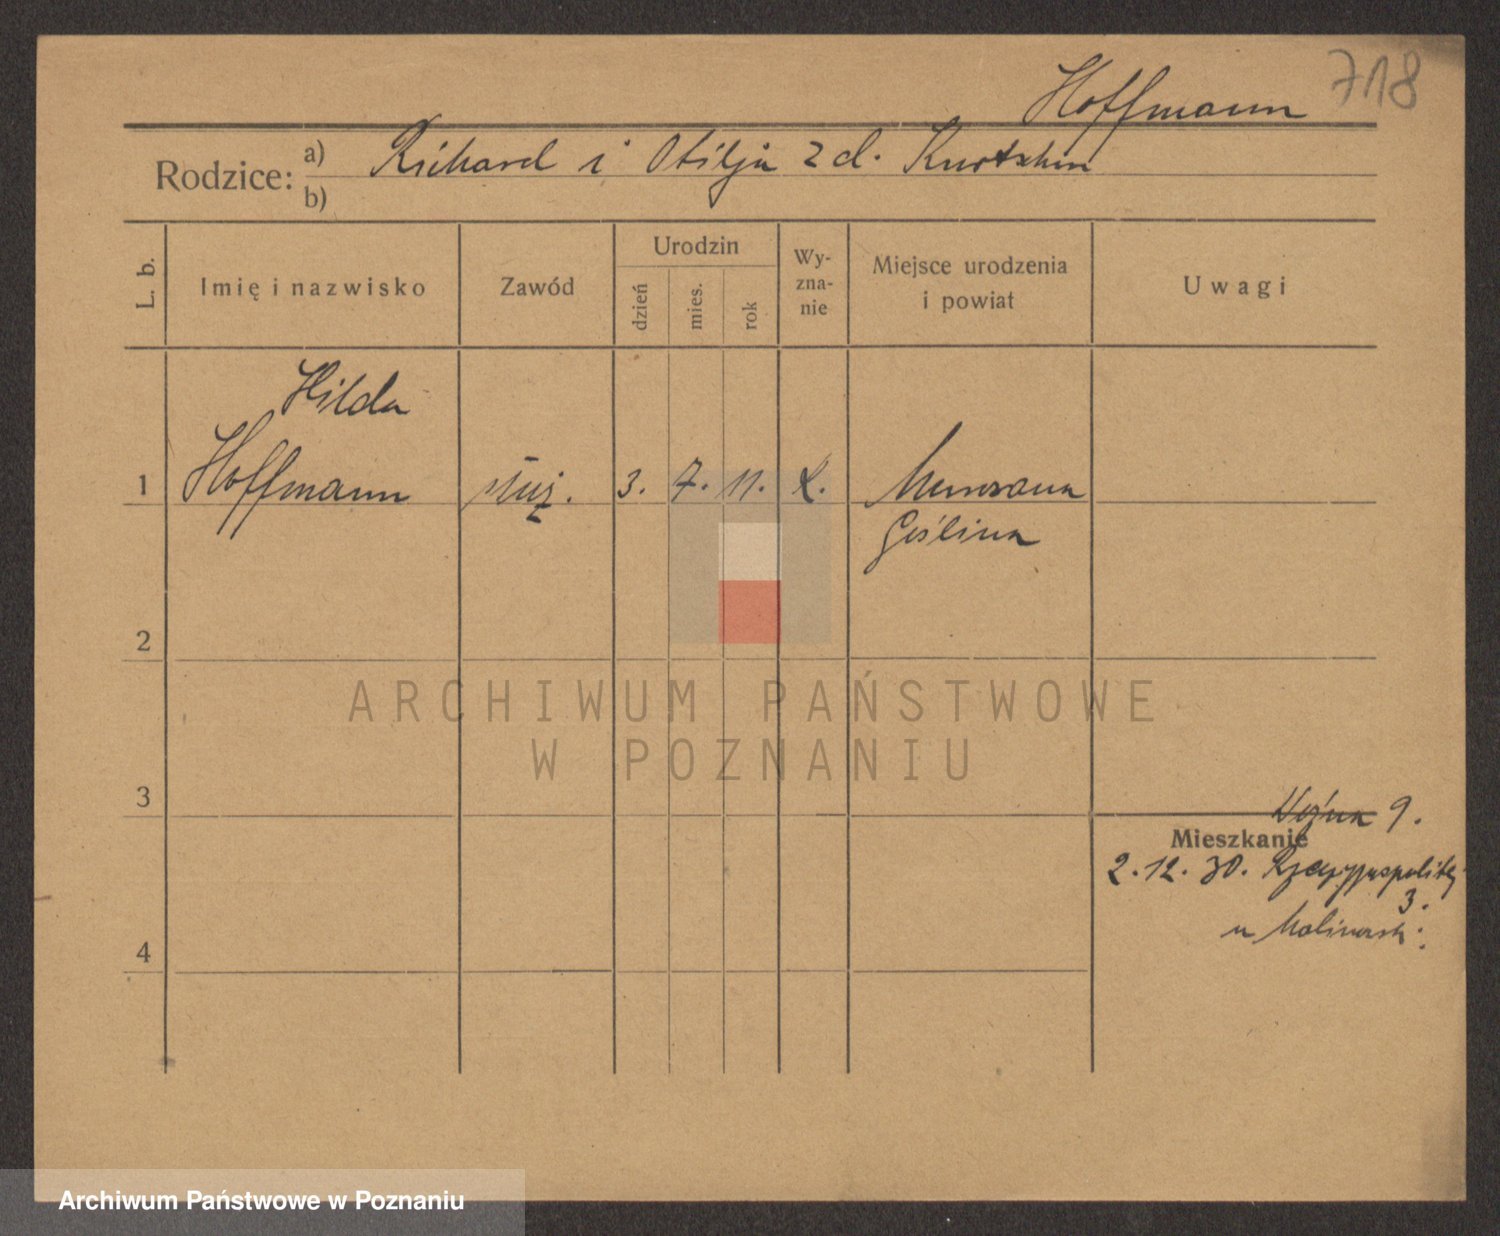 718
Hoffmann
Rodzice: a) Richard i Otilja z d.
b)
L. b. Imię i nazwisko Zawód Urodzin dzień mies. rok Wy-zna-nie Miejsce urodzenia i powiat Uwagi
Hilda
1 Hoffmann służ. 3. 7. 11. Murowana
Goślina
2
ARCHIWUM PAŃSTWOWE
W POZNANIU
3
Woźna 9.
Mieszkanie
2.12.30. Rzeczypospolitej
3.
u
4
Archiwum Państwowe w Poznaniu